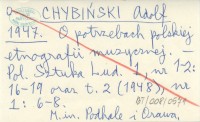 CHYBIŃSKI Adolf
1947. O potrzebach polskiej
etnografii muzycznej. —
Pol. Sztuka Lud. 1, nr 1-2:
16-19 oraz t. 2 (1948), nr
1: 6-8.
M.in. Podhale i Orawa.